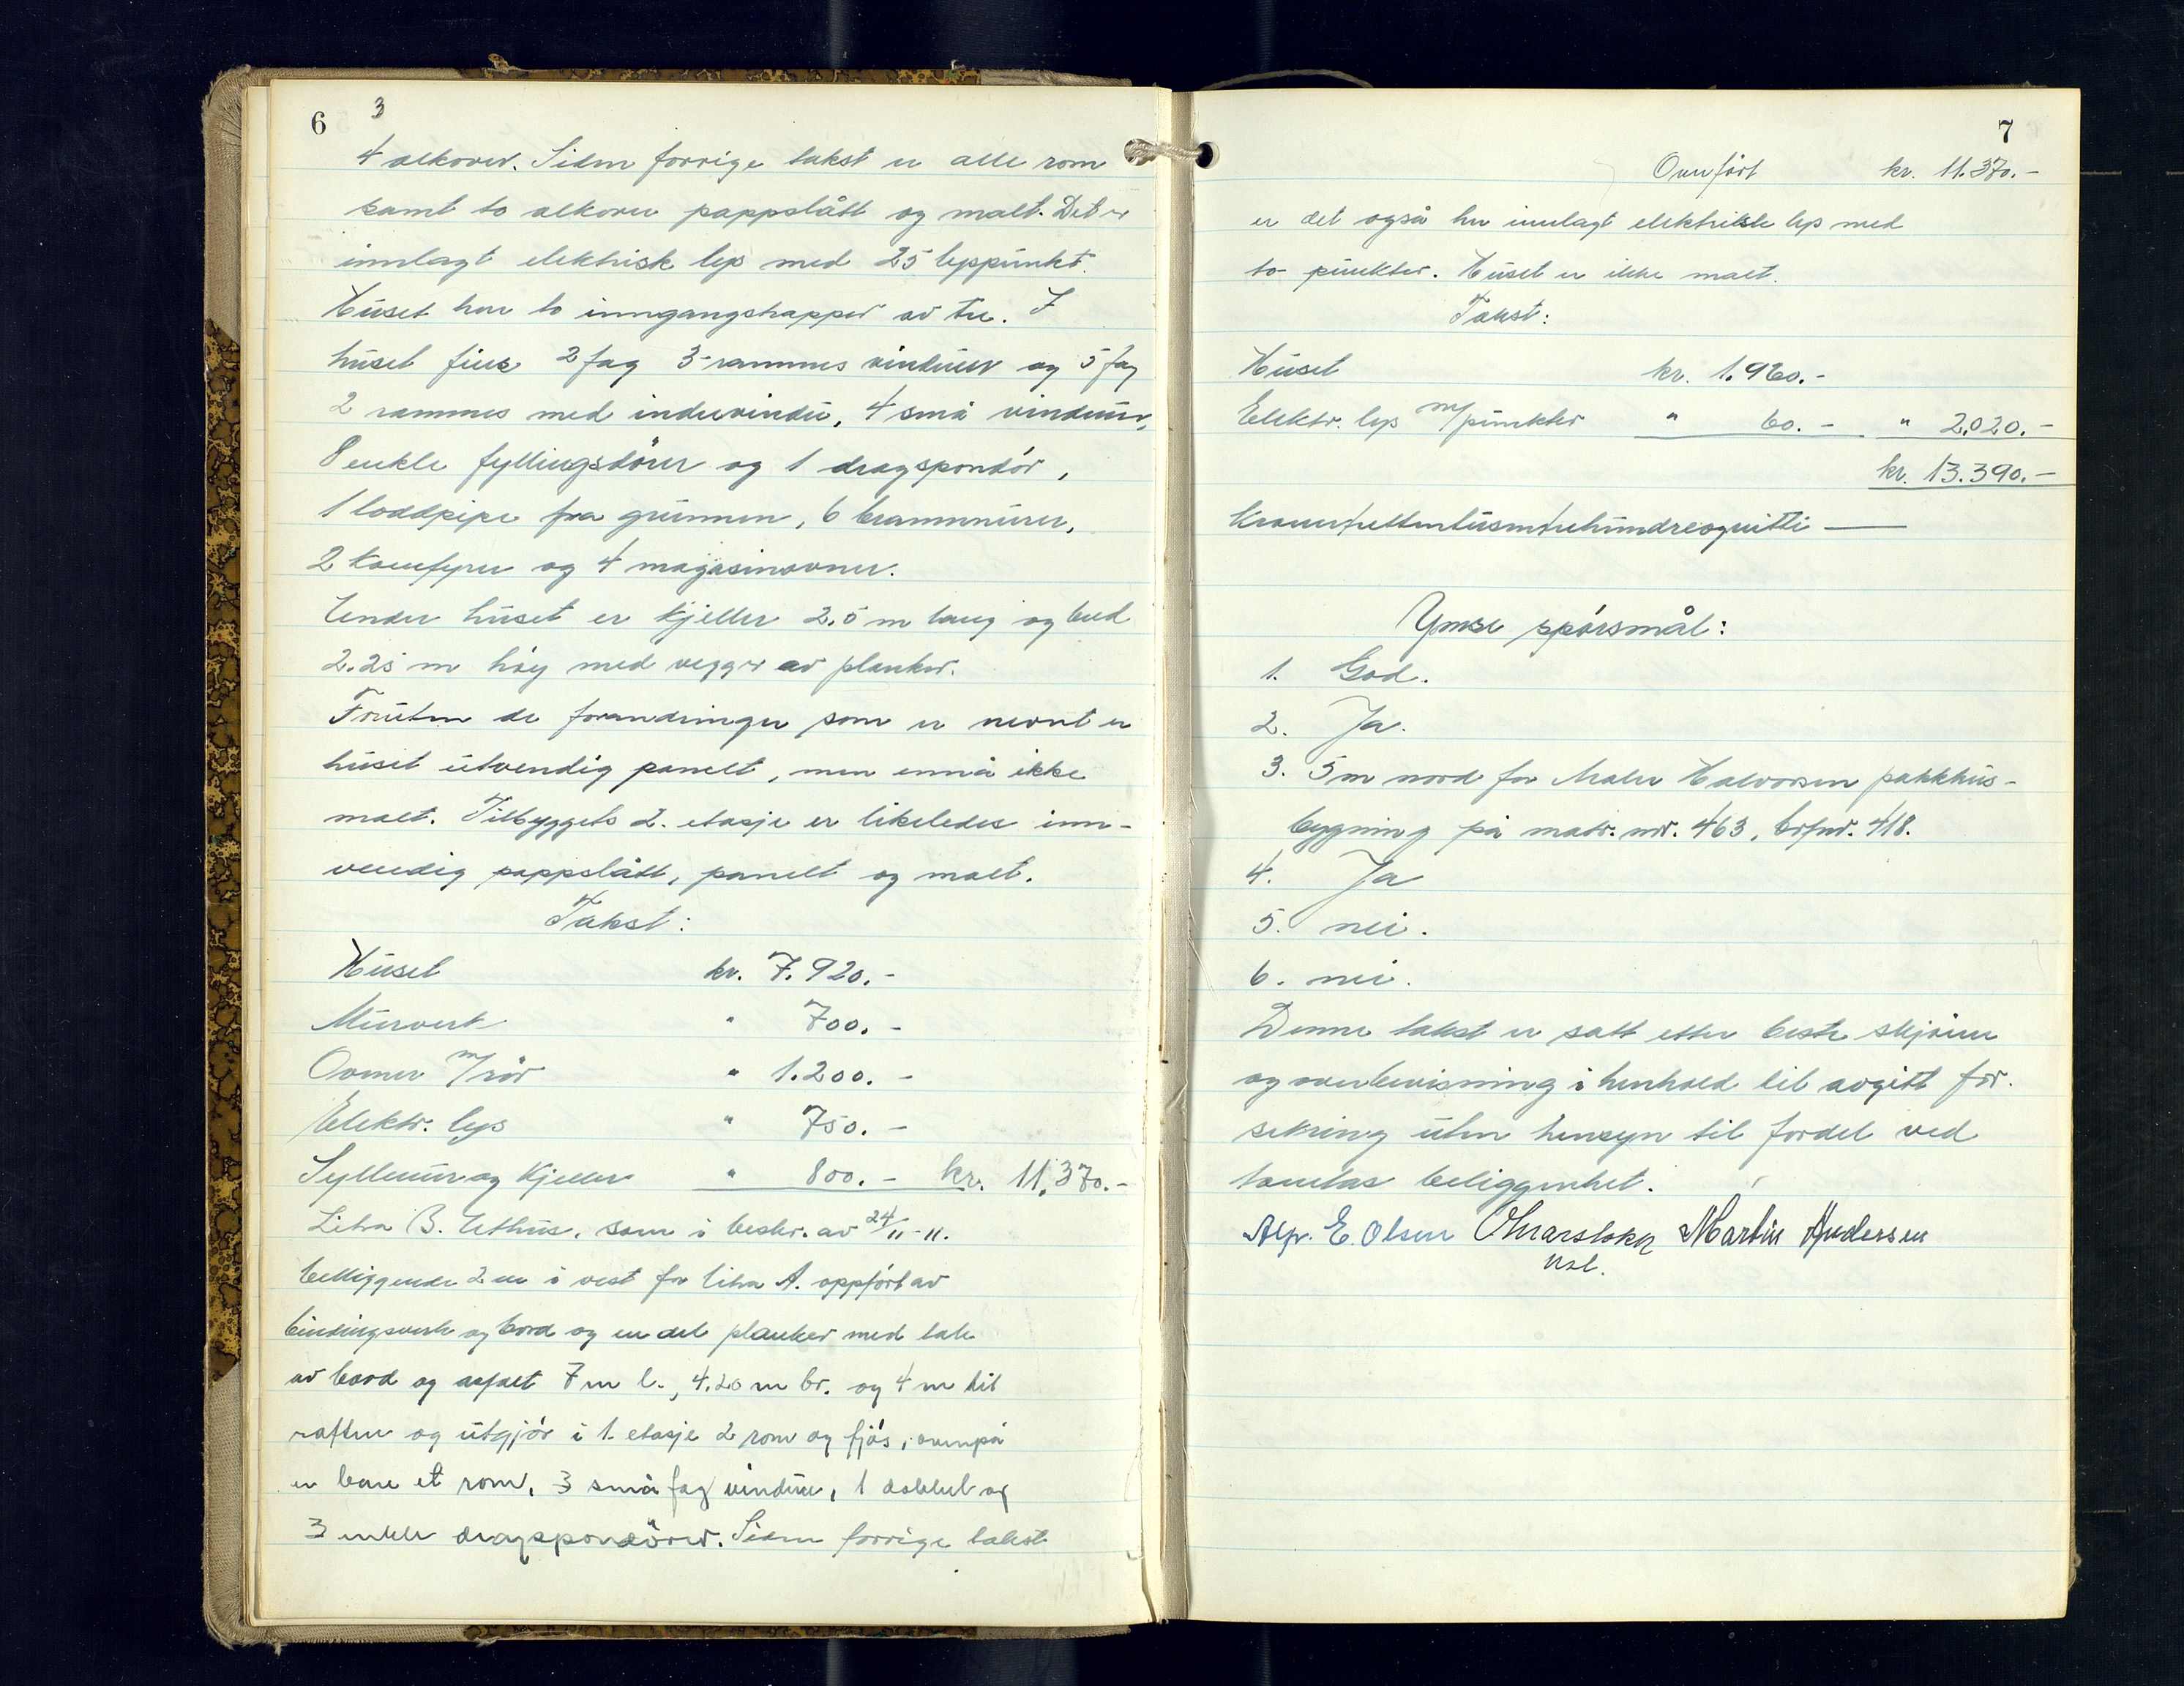 6 3
4 alkover. Siden forrige takst er alle rom
samt to alkover pappslått og malt. Det er
innlagt elektrisk lys med 25 lyspunkt.
Huset har to inngangstrapper av tre. I
huset fins 2 fag 3-rammes vinduer og 5 fag
2 rammes med indervindu, 4 små vinduer,
8 enkle fyllingsdører og 1 dragspondör,
1 loddpipe fra grunnen, 6 brannmurer,
2 komfyrer og 4 magasinovner.
Under huset er kjeller 2.5 m lang og bred
2.25 m høy med vegger av planker.
Foruten de forandringer som er nevnt er
huset utvendig panelt, men ennå ikke
malt. Tilbyggets 2. etasje er likeledes inn-
vendig pappslått, panelt og malt.
Takst:
Huset kr. 7.920.-
Murverk " 700.-
Ovner m/rör " 1.200.-
Elektr. lys " 750.-
Syllmur og kjeller " 800.- kr. 11.370.-
Litra B. Uthus, som i beskr. av 24/11-11.
beliggende 2 m i vest for litra A. oppført av
bindingsverk og bord og en del planker med tak
av bord og asfalt 7 m l., 4.20 m br. og 4 m til
raften og utgjör i 1. etasje 2 rom og fjós, ovenpå
er bare et rom, 3 små fag vinduer, 1 dobbel og
3 enkle dragspondörer. Siden forrige takst
7
Overfört kr. 11.370.-
er det også her innlagt elektriske lys med
to punkter. Huset er ikke malt.
Takst:
Huset kr. 1.960.-
Elektr. lys m/punkter " 60.- " 2.020.-
kr. 13.390.-
Kroner trettentusentrehundreognitti —
Ymse spørsmål:
1. God.
2. Ja.
3. 5 m nord for Maler Halvorsen pakkhus-
bygning på matr. nr. 463, brfnr. 418.
4. Ja
5. nei.
6. nei.
Denne takst er satt etter beste skjönn
og overbevisning i henhold til avgitt for-
sikring uten hensyn til fordel ved
tomtas beliggenhet.
Alfr. E. Olsen Martin Andersen